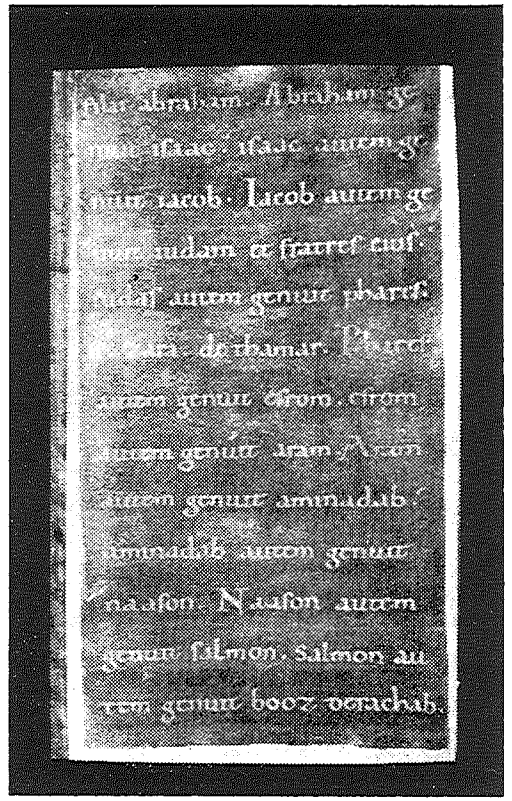 filii abraham. Abraham ge
nuit isaac. isaac autem ge
nuit iacob. Iacob autem ge
nuit iudam et fratres eius.
Iudas autem genuit phares.
zara. de thamar. Phares
autem genuit esrom. esrom
autem genuit aram. Aram
autem genuit aminadab.
aminadab autem genuit
naason. Naason autem
genuit salmon. salmon au
tem genuit booz derachab.